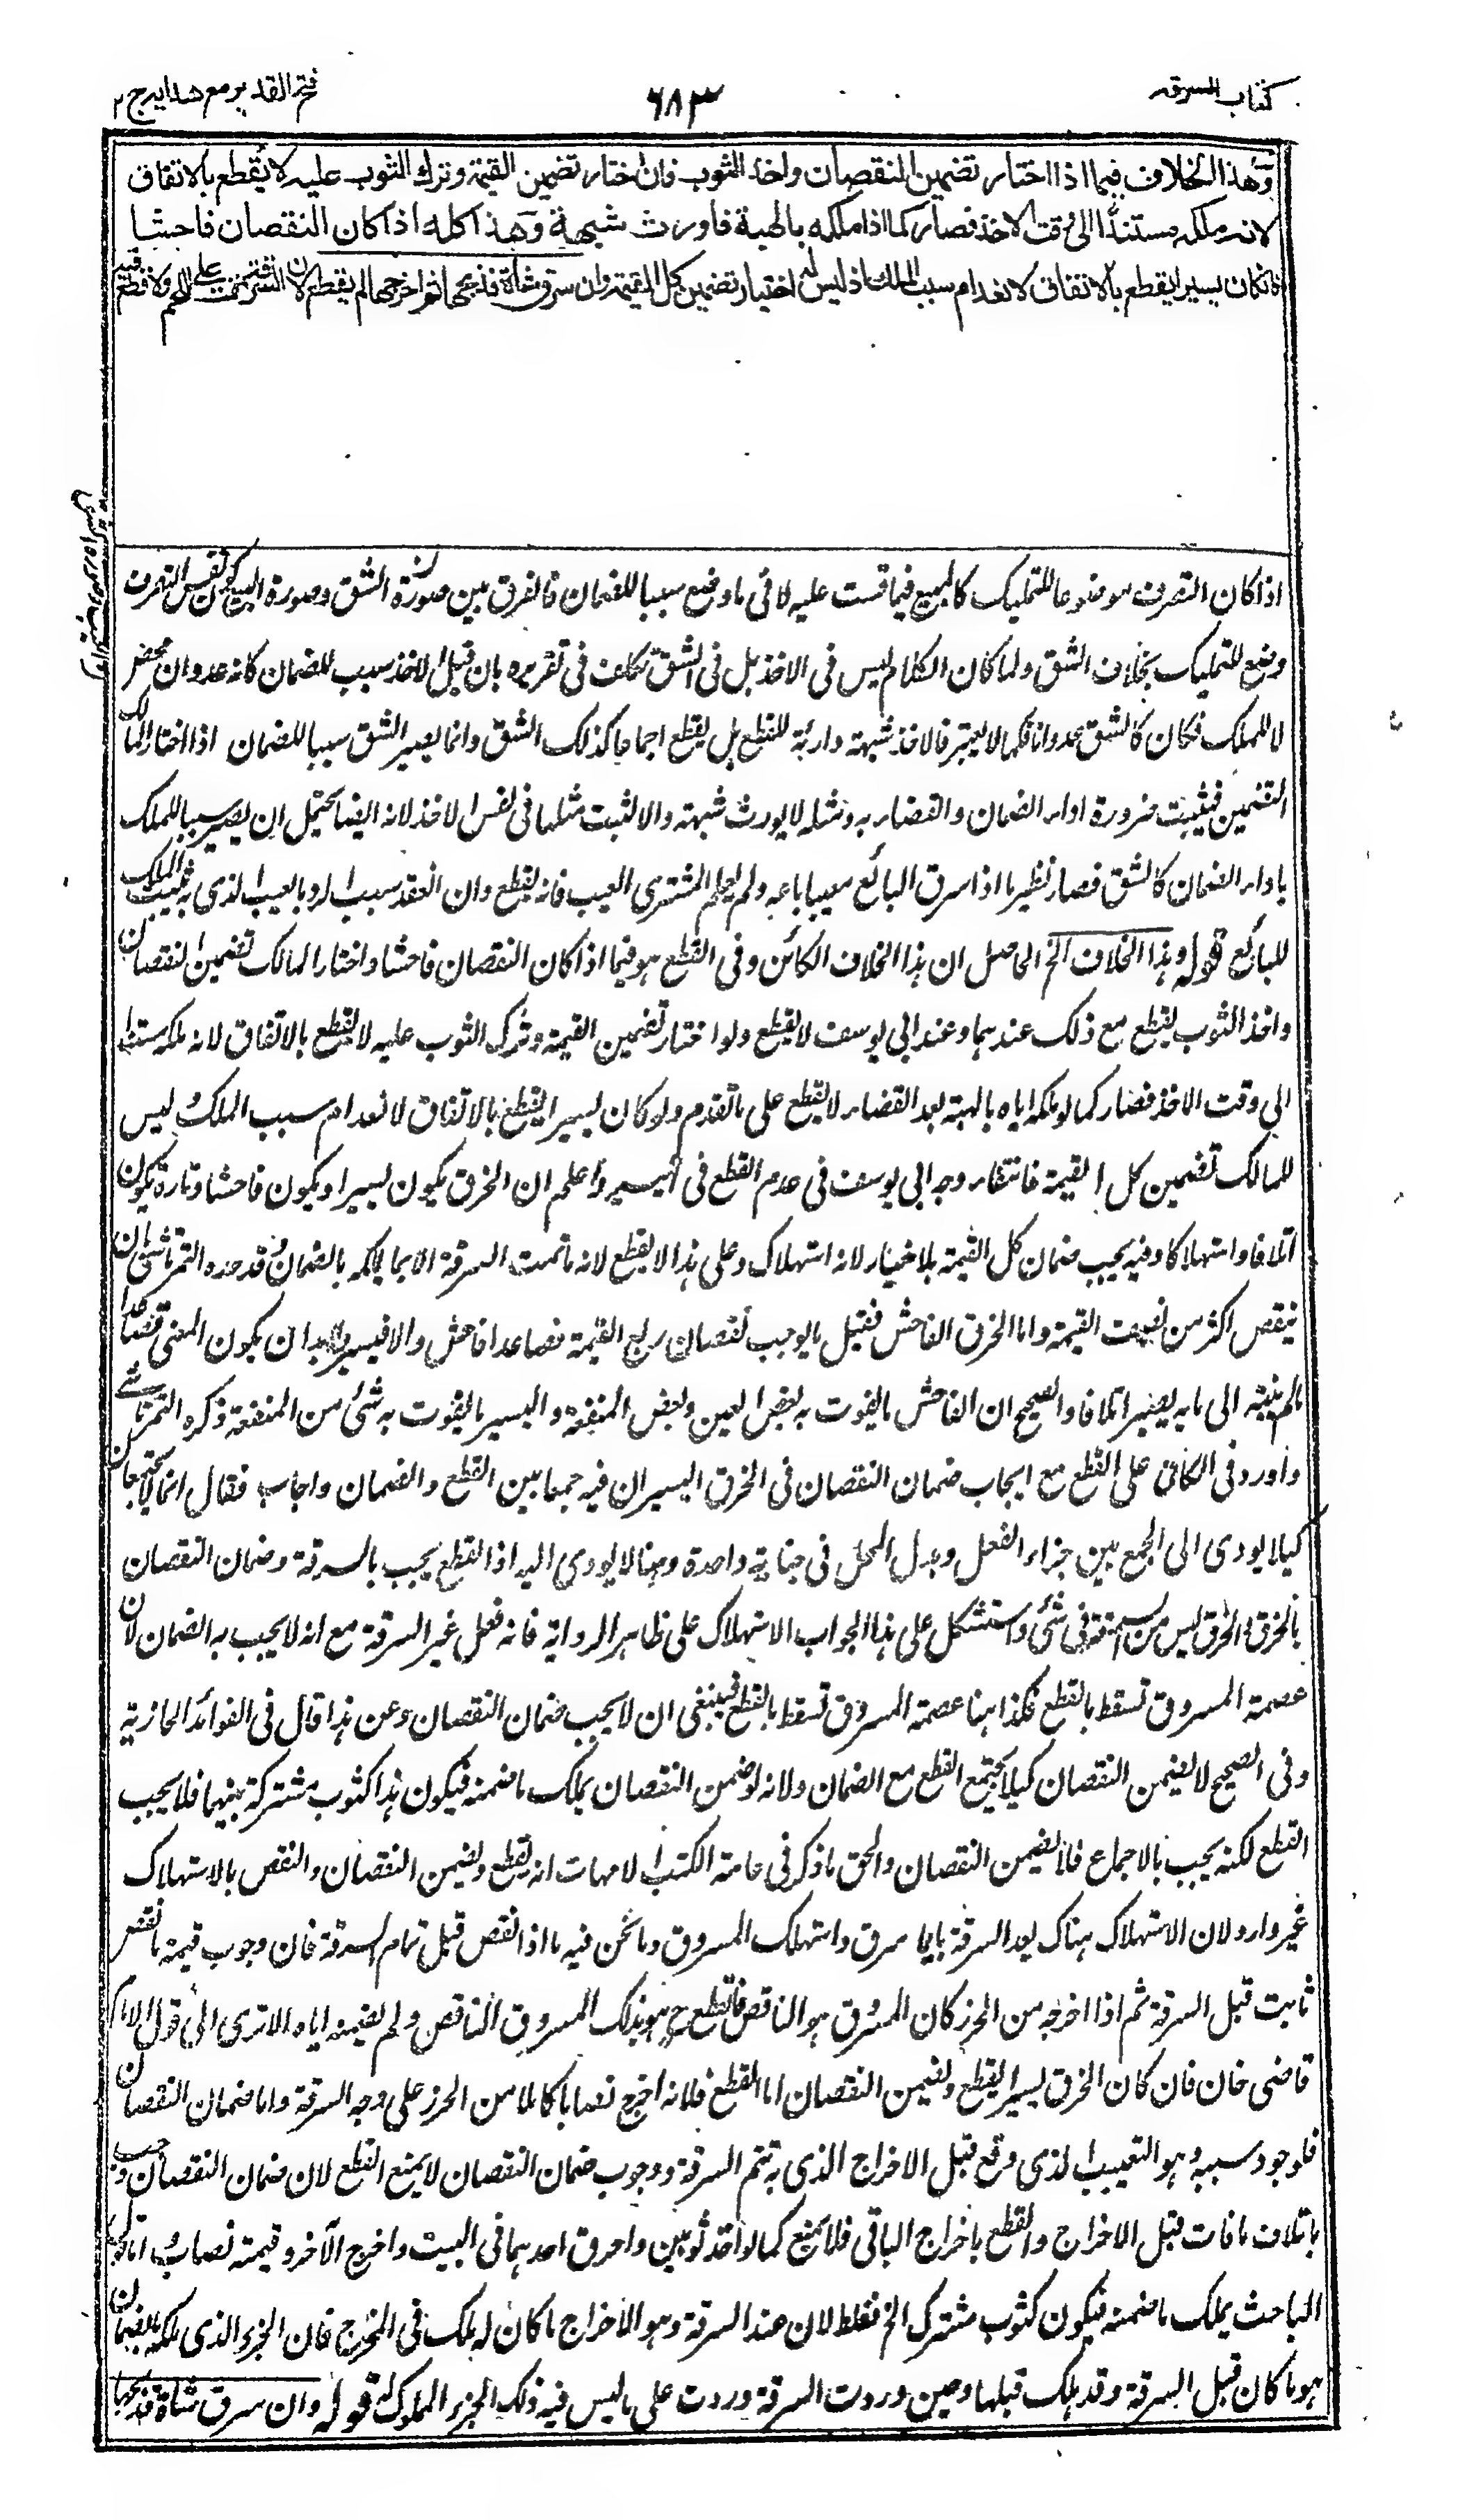 كتاب السرقة
٦٨٣
فتح القدير مع هدايه ج ٢
وهذا الخلاف فيما اذا اختار تضمين النقصان واخذ الثوب فان اختار تضمين القيمة وترك الثوب عليه لا يقطع بالاتفاق
لانه ملكه مستندا الى وقت الاخذ فصار كما اذا ملكه بالهبة فاورث شبهة وهذا كله اذا كان النقصان فاحشا
فان كان يسيرا يقطع بالاتفاق لانعدام سبب الملك اذ ليس له اختيار تضمين كل القيمة وان سرق شاة فذبحها ثم اخرجها لم يقطع لان السرقة تمت على اللحم ولا قطع فيه
اذا كان التصرف موضوعا للتمليك كالبيع فيما قست عليه لا فى ما وضع سببا للضمان فالفرق بين صورة الشق وصورة البيع كون نفس التصرف
وضع للتمليك بخلاف الشق ولما كان الكلام ليس فى الاخذ بل فى الشق تكلف فى تقريره بان قيل الاخذ سبب للضمان كانه عدوان محض
لا للملك فكان كالشق عدوانا فكما لا يعتبر فالاخذ شبهة دارئة للقطع بل يقطع اجماعا كذلك الشق وانما يصير الشق سببا للضمان اذا اختار المالك
التضمين فيثبت ضرورة اداء الضمان والقضاء به ومثله لا يورث شبهة والا لثبت مثلها فى نفس الاخذ لانه ايضا يحتمل ان يصير سببا للملك
باداء الضمان كالشق فصار نظير ما اذا سرق البائع معيبا باعه ولم يعلم المشترى العيب فانه يقطع وان انعقد سبب الرد بالعيب الذى به يثبت الملك
للبائع قوله وهذا الخلاف الخ الحاصل ان هذا الخلاف الكائن وفى القطع هو فيما اذا كان النقصان فاحشا واختار المالك تضمين النقصان
واخذ الثوب يقطع مع ذلك عندهما وعند ابى يوسف لا يقطع ولو اختار تضمين القيمة وترك الثوب عليه لا يقطع بالاتفاق لانه ملكه مستندا
الى وقت الاخذ فصار كما لو ملكه اياه بالهبة بعد القضاء لا يقطع على ما تقدم ولو كان يسيرا يقطع بالاتفاق لانعدام سبب الملك وليس
للمالك تضمين كل القيمة فانتفاء وجه ابى يوسف فى عدم القطع فى اليسير واعلم ان الخرق يكون يسيرا ويكون فاحشا وتارة يكون
اتلافا واستهلاكا وفيه يجب ضمان كل القيمة بلا خيار لانه استهلاك وعلى هذا لا يقطع لانه ما تمت السرقة الا بما يملكه بالضمان وقد حده التمرتاشى ان
ينقص اكثر من نصف القيمة واما الخرق الفاحش فقيل ما يوجب نقصان ربع القيمة فصاعدا فاحش والا فيسير ولابد ان يكون المعنى فصاعدا
ما لم ينته الى ما به يصير اتلافا والصحيح ان الفاحش ما يفوت به بعض العين وبعض المنفعة واليسير ما يفوت به شئ من المنفعة ذكره التمرتاشے
واورد فى الكافى على القطع مع ايجاب ضمان النقصان فى الخرق اليسير ان فيه جمعا بين القطع والضمان واجاب فقال انما لا يجتمعان
كيلا يودى الى الجمع بين جزاء الفعل وبدل المحل فى جناية واحدة وههنا لا يودى اليه اذ القطع يجب بالسرقة وضمان النقصان
بالخرق والخرق ليس من السرقة فى شئ واستشكل على هذا الجواب الاستهلاك على ظاهر الرواية فانه فعل غير السرقة مع انه لا يجب به الضمان لان
عصمة المسروق تسقط بالقطع فكذا هنا عصمة المسروق تسقط بالقطع فينبغى ان لا يجب ضمان النقصان وعن هذا قال فى الفوائد الخبازية
وفى الصحيح لا يضمن النقصان كيلا يجتمع القطع مع الضمان ولانه لو ضمن النقصان يملك ما ضمنه فيكون هذا كثوب مشتركة بينهما فلا يجب
القطع لكنه يجب بالاجماع فلا يضمن النقصان والحق ما ذكر فى عامة الكتب الامهات انه يقطع ويضمن النقصان والنقض بالاستهلاك
غير وارد لان الاستهلاك هناك بعد السرقة بان سرق واستهلك المسروق وما نحن فيه ما اذا نقص قبل تمام السرقة فان وجوب قيمة ما نقص
ثابت قبل السرقة ثم اذا اخرجه من الحرز كان المسروق هو الناقص فالقطع ح بذلك المسروق الناقص ولم يضمنه اياه الا ترى الى قول الامام
قاضى خان فان كان الخرق يسيرا يقطع ويضمن النقصان اما القطع فلانه اخرج نصابا كاملا من الحرز على وجه السرقة واما ضمان النقصان
فلوجود سببه وهو التعييب الذى وقع قبل الاخراج الذى به تتم السرقة ووجوب ضمان النقصان لا يمنع القطع لان ضمان النقصان وجب
باتلاف ما فات قبل الاخراج والقطع باخراج الباقى فلا يمنع كما لو اخذ ثوبين واحرق احدهما فى البيت واخرج الآخر وقيمته نصاب واما قول
الباحث يملك ما ضمنه فيكون كثوب مشترك الخ فغلط لان عند السرقة وهو الاخراج ما كان له ملك فى المخرج فان الجزء الذى ملكه بالضمان
هو ما كان قبل السرقة وقد هلك قبلها وحين وردت السرقة وردت على ما ليس فيه ذلك الجزء المملوك له قوله وان سرق شاة فذبحها